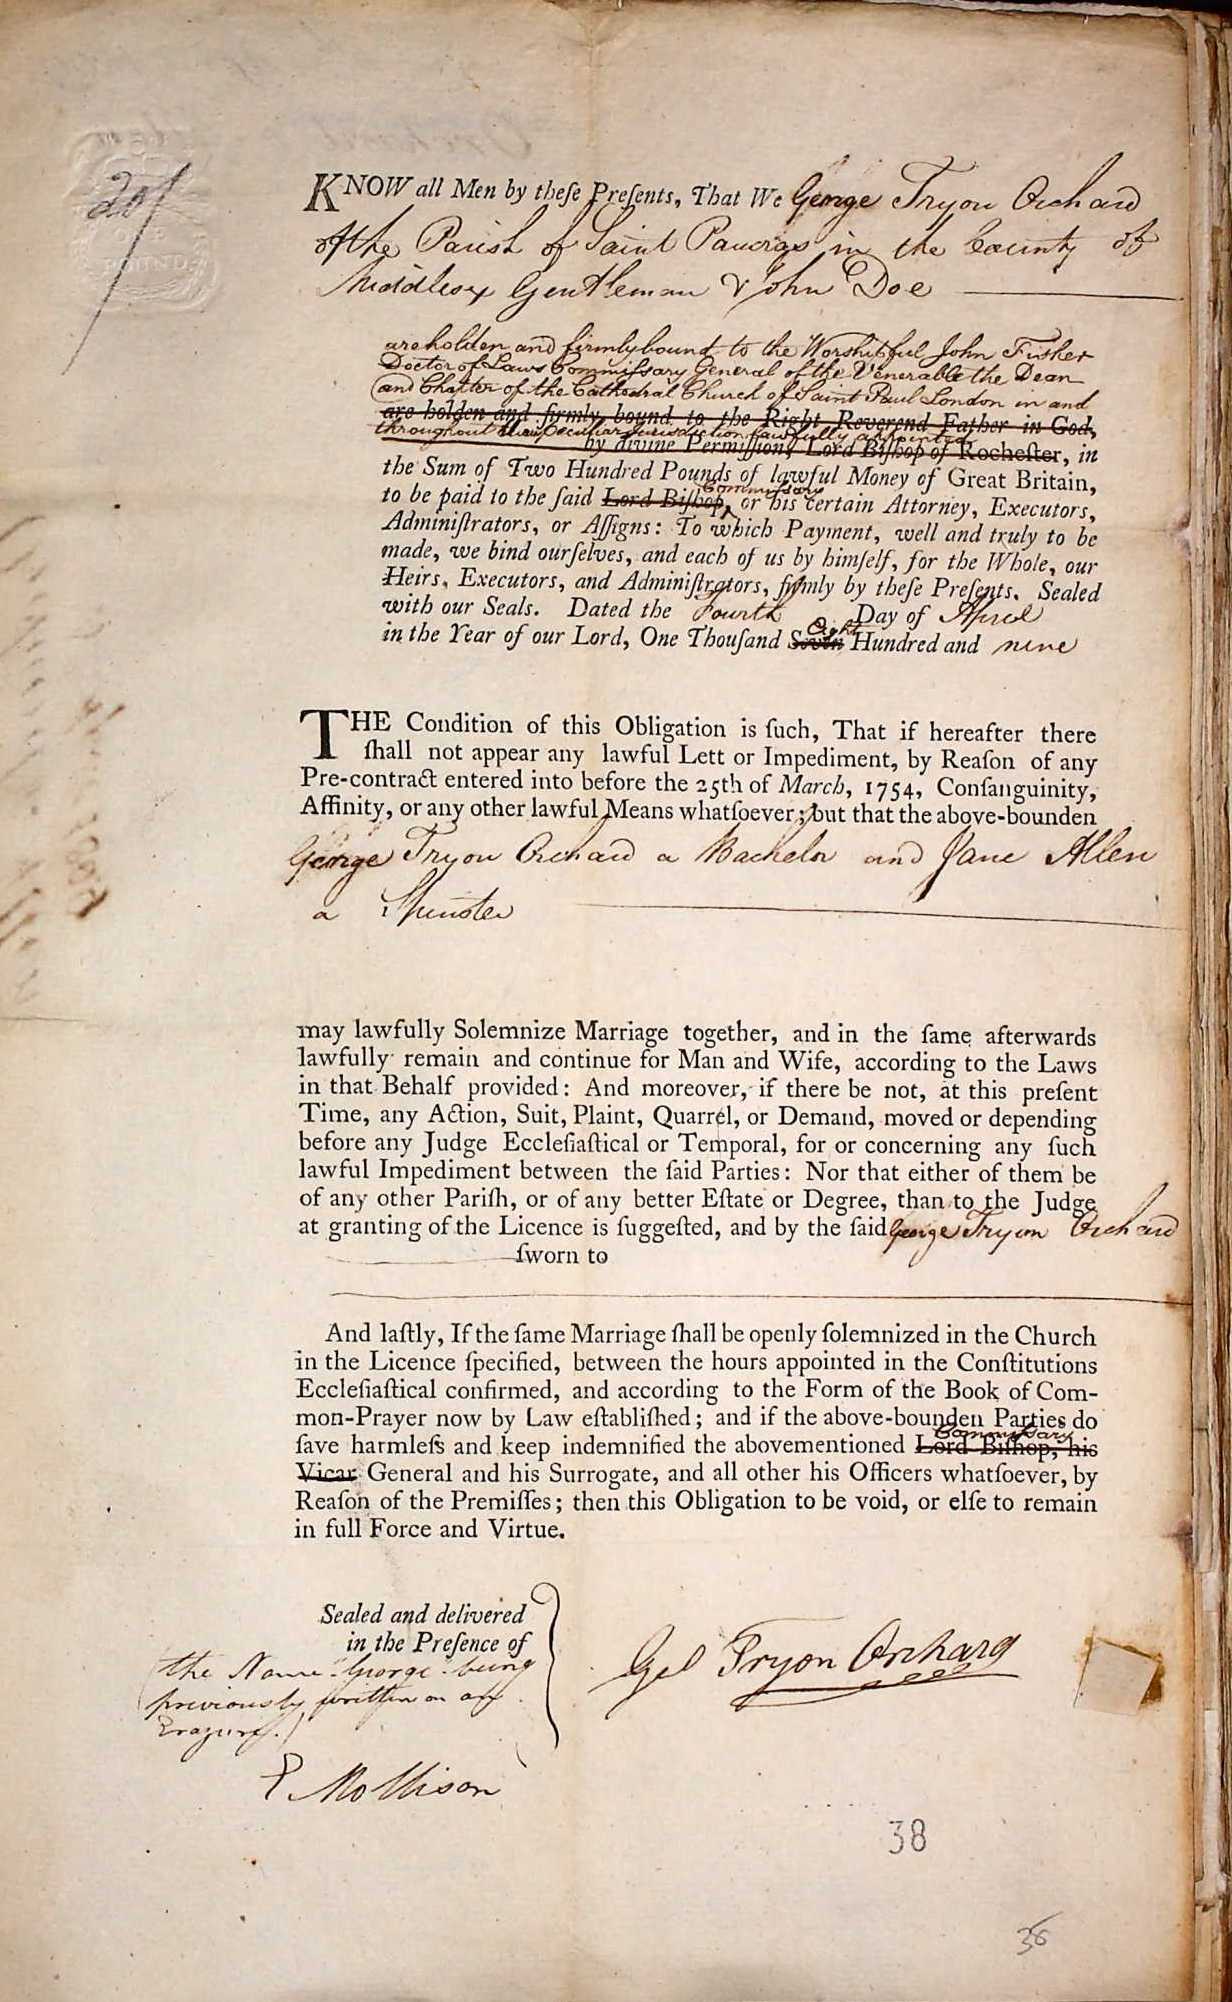 20/
POUND
KNOW all Men by theſe Preſents, That We George Tryon Orchard
of the Parish of Saint Pancras in the County of
Middlesex Gentleman & John Doe
are holden and firmly bound to the Worshipful John Fisher
Doctor of Laws Commiſsary General of the Venerable the Dean
and Chapter of the Cathedral Church of Saint Paul London in and
are holden and firmly bound to the Right Reverend Father in God,
throughout their Peculiar Jurisdiction lawfully appointed
by divine Permiſſion, Lord Biſhop of Rocheſter, in
the Sum of Two Hundred Pounds of lawful Money of Great Britain,
Commiſsary
to be paid to the ſaid Lord Biſhop, or his certain Attorney, Executors,
Adminiſtrators, or Aſſigns: To which Payment, well and truly to be
made, we bind ourſelves, and each of us by himſelf, for the Whole, our
Heirs, Executors, and Adminiſtrators, firmly by theſe Preſents. Sealed
with our Seals. Dated the Fourth Day of April
Eight
in the Year of our Lord, One Thouſand Seven Hundred and nine
THE Condition of this Obligation is ſuch, That if hereafter there
ſhall not appear any lawful Lett or Impediment, by Reaſon of any
Pre-contract entered into before the 25th of March, 1754, Conſanguinity,
Affinity, or any other lawful Means whatſoever; but that the above-bounden
George Tryon Orchard a Bachelor and Jane Allen
a Spinster
may lawfully Solemnize Marriage together, and in the ſame afterwards
lawfully remain and continue for Man and Wife, according to the Laws
in that Behalf provided: And moreover, if there be not, at this preſent
Time, any Action, Suit, Plaint, Quarrel, or Demand, moved or depending
before any Judge Eccleſiaſtical or Temporal, for or concerning any ſuch
lawful Impediment between the ſaid Parties: Nor that either of them be
of any other Pariſh, or of any better Eſtate or Degree, than to the Judge
at granting of the Licence is ſuggeſted, and by the ſaid George Tryon Orchard
ſworn to
And laſtly, If the ſame Marriage ſhall be openly ſolemnized in the Church
in the Licence ſpecified, between the hours appointed in the Conſtitutions
Eccleſiaſtical confirmed, and according to the Form of the Book of Com-
mon-Prayer now by Law eſtabliſhed; and if the above-bounden Parties do
Commiſsary
ſave harmleſs and keep indemnified the abovementioned Lord Biſhop, his
Vicar General and his Surrogate, and all other his Officers whatſoever, by
Reaſon of the Premiſſes; then this Obligation to be void, or elſe to remain
in full Force and Virtue.
Sealed and delivered
in the Preſence of
(the Name "George" being
previously written on an
Erazure.)
P Mollison
Geo Tryon Orchard
38
36